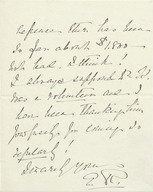 expense there has been
so far about $1.800
not bad I think!
I always supposed Dr. W.
was a volunteer and I
have been thanking him
for coming so
regularly!
Sincerely yours